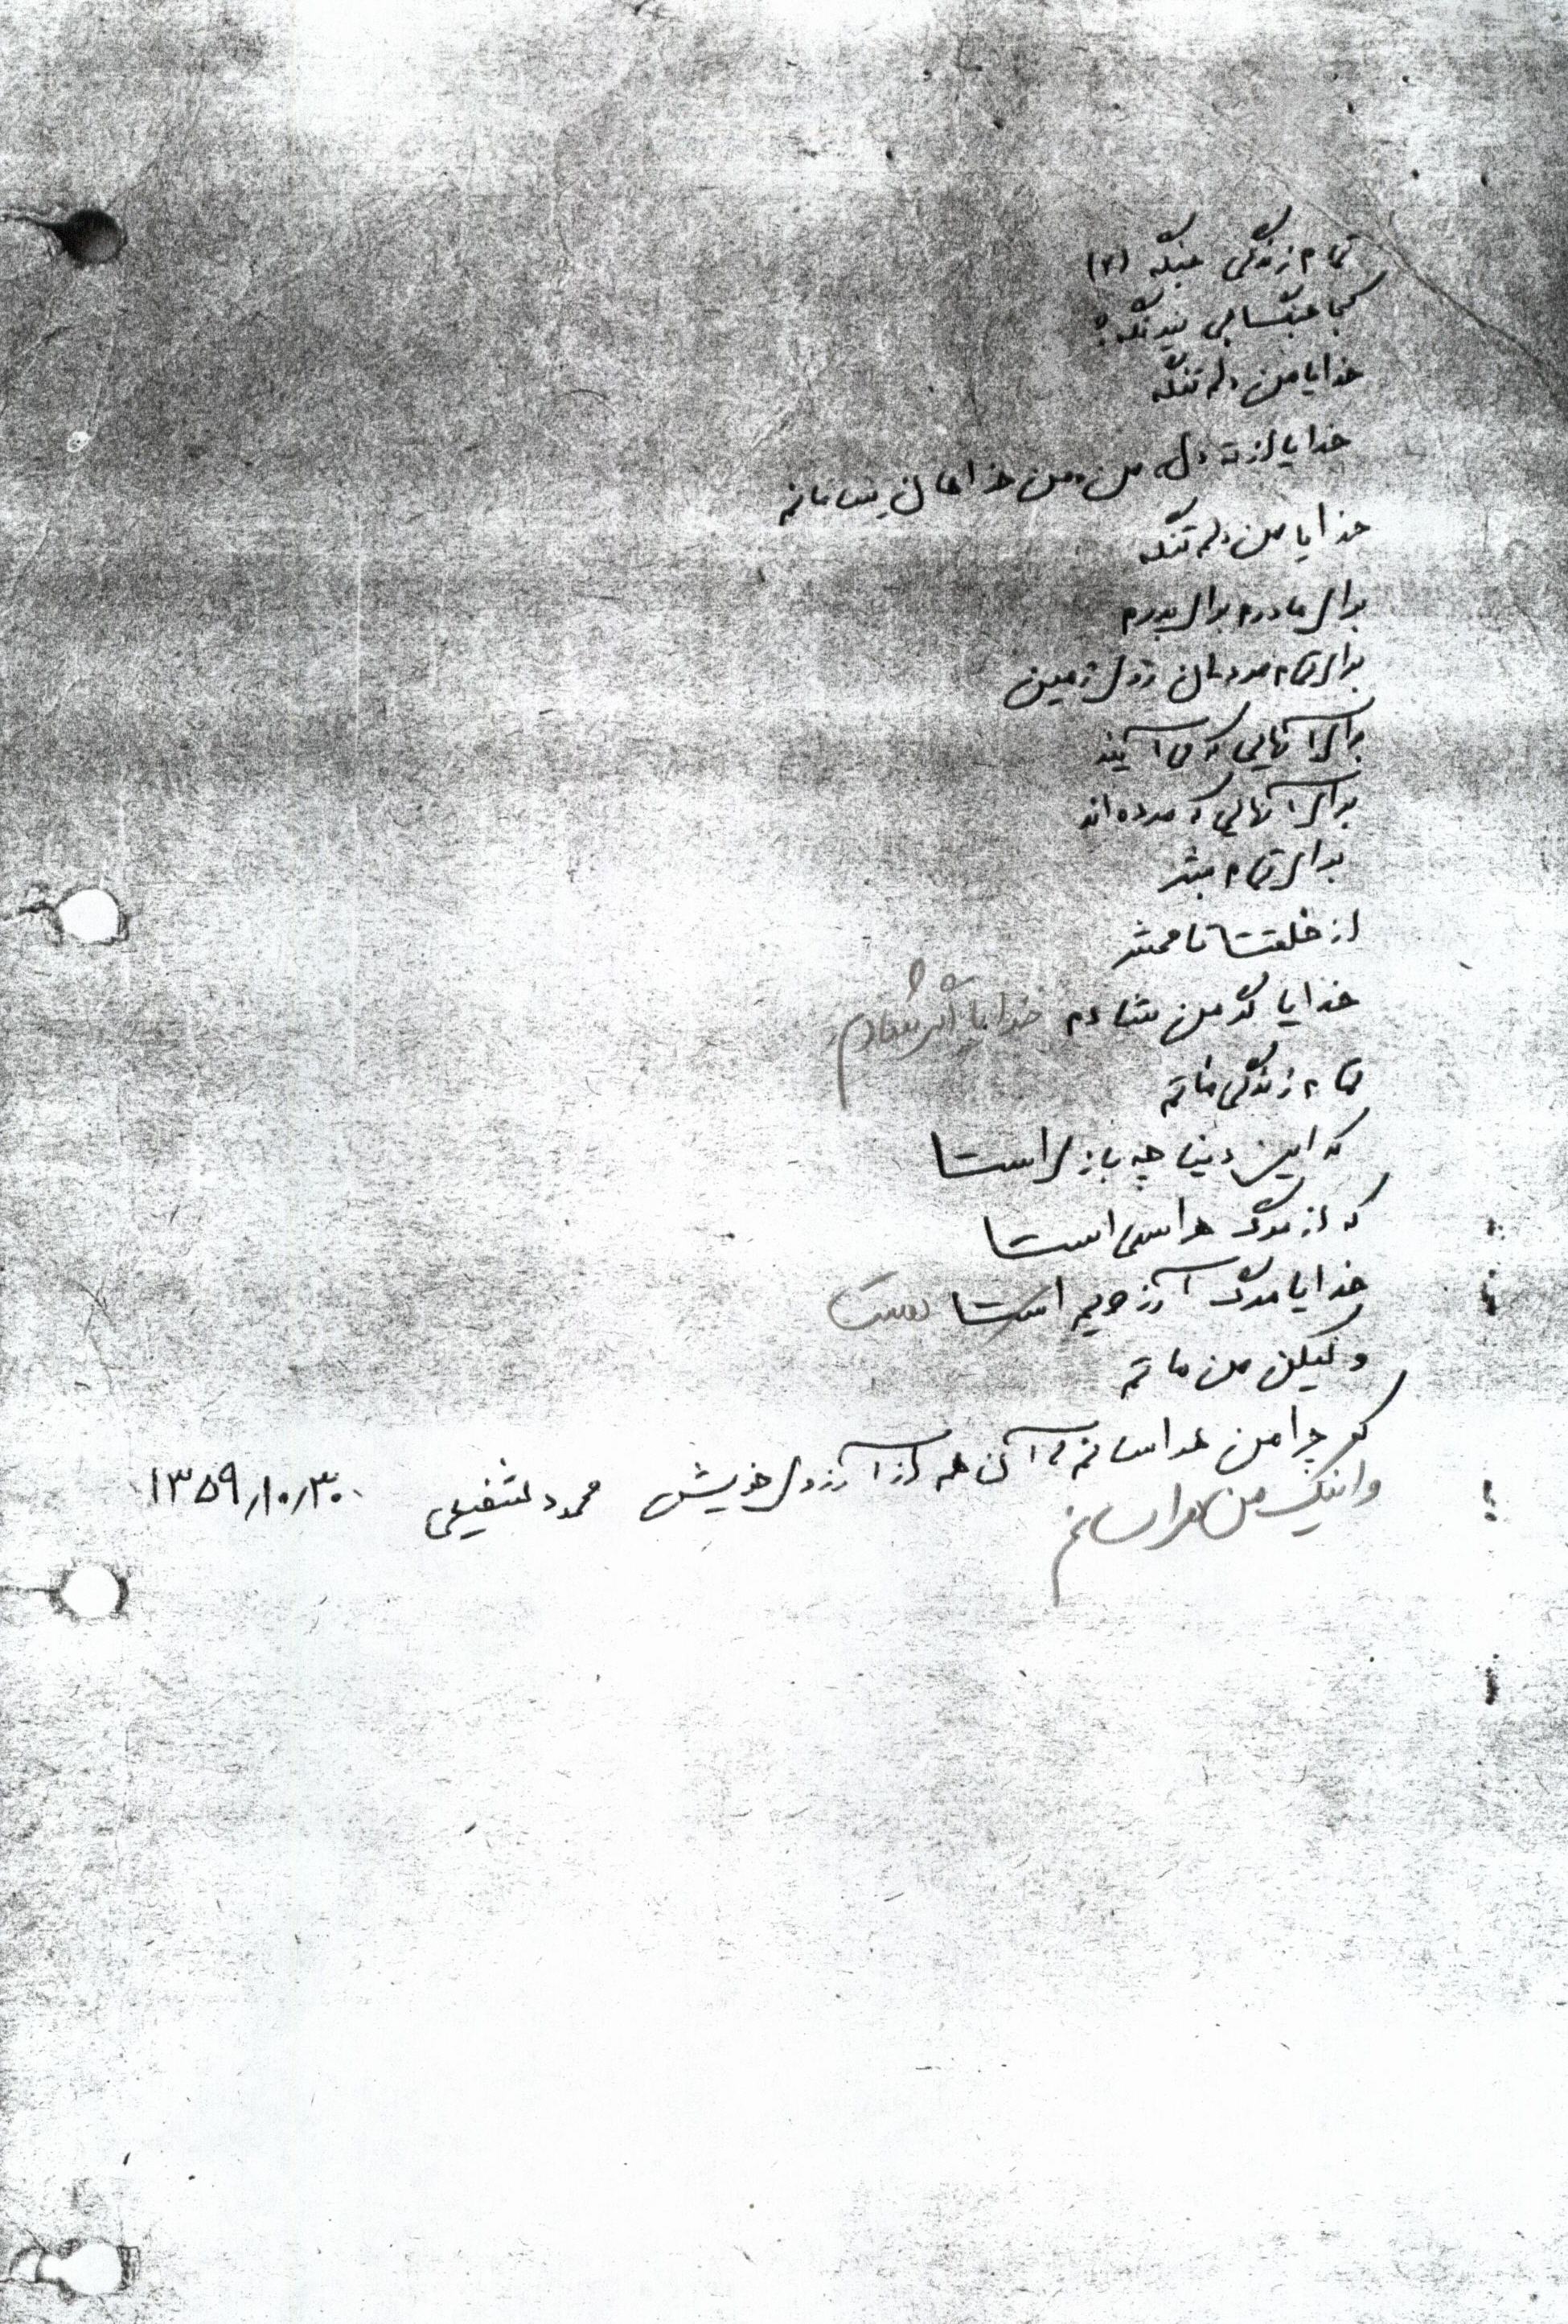 تمام زندگی جنگه (۲)
کجا جنگست بی نیرنگه؟
خدایا من دلم تنگه
خدایا از ته دل من
خدایا من دلم تنگه
برای مادرم برای پدرم
برای تمام مردمان روی زمین
برای آنهایی که می آیند
برای آنهایی که مرده اند
برای تمام بشر
از خلقت تا محشر
خدایا گر من شادم خدایا اگر شادم
تمام زندگی ماتم
که این دنیا چه بازی است
که از مرگ هراسی است
خدایا مرگ آرزویم است هست
ولیکن من ماتم
که چرا من هراسانم از آن همه از آرزوی خویش محمود شفیعی ۱۳۵۹٫۱۰٫۳۰
و اینک من هراسانم